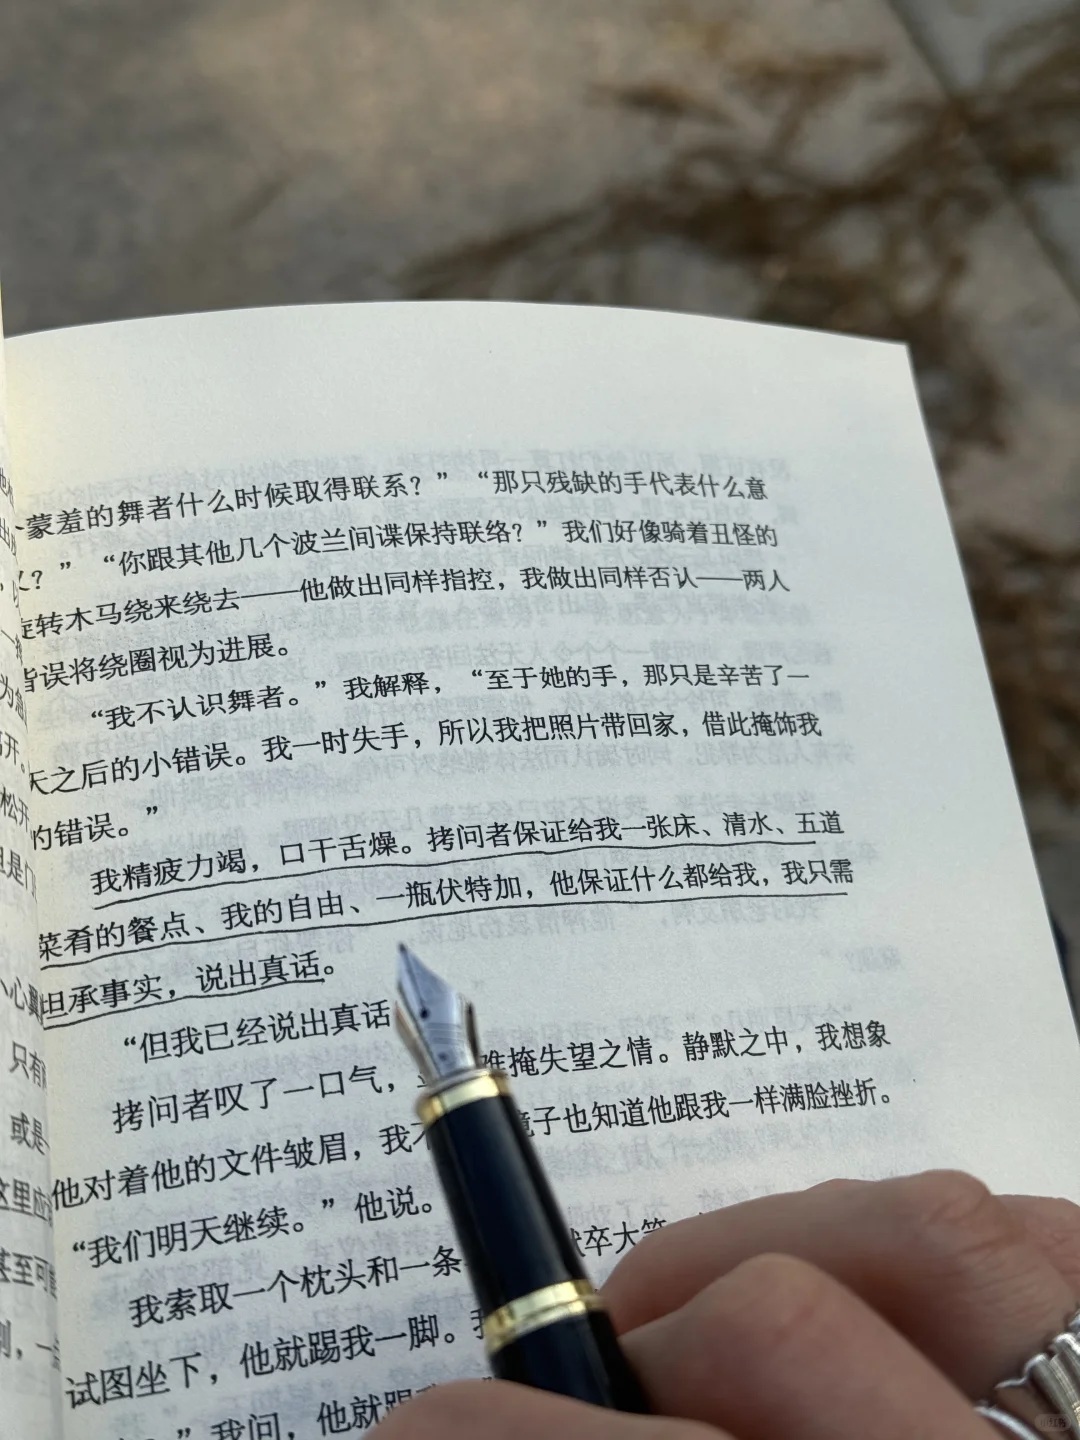 蒙羞的舞者什么时候取得联系？” “那只残缺的手代表什么意
义？” “你跟其他几个波兰间谍保持联络？” 我们好像骑着丑怪的
旋转木马绕来绕去——他做出同样指控，我做出同样否认——两人
皆误将绕圈视为进展。
“我不认识舞者。” 我解释， “至于她的手，那只是辛苦了一
天之后的小错误。我一时失手，所以我把照片带回家，借此掩饰我
的错误。”
我精疲力竭，口干舌燥。拷问者保证给我一张床、清水、五道
菜肴的餐点、我的自由、一瓶伏特加，他保证什么都给我，我只需
坦承事实，说出真话。
“但我已经说出真话
拷问者叹了一口气， 难掩失望之情。静默之中，我想象
他对着他的文件皱眉，我不 镜子也知道他跟我一样满脸挫折。
“我们明天继续。” 他说。
我索取一个枕头和一条 狱卒大笑
试图坐下，他就踢我一脚。我
” 我问，他就踢